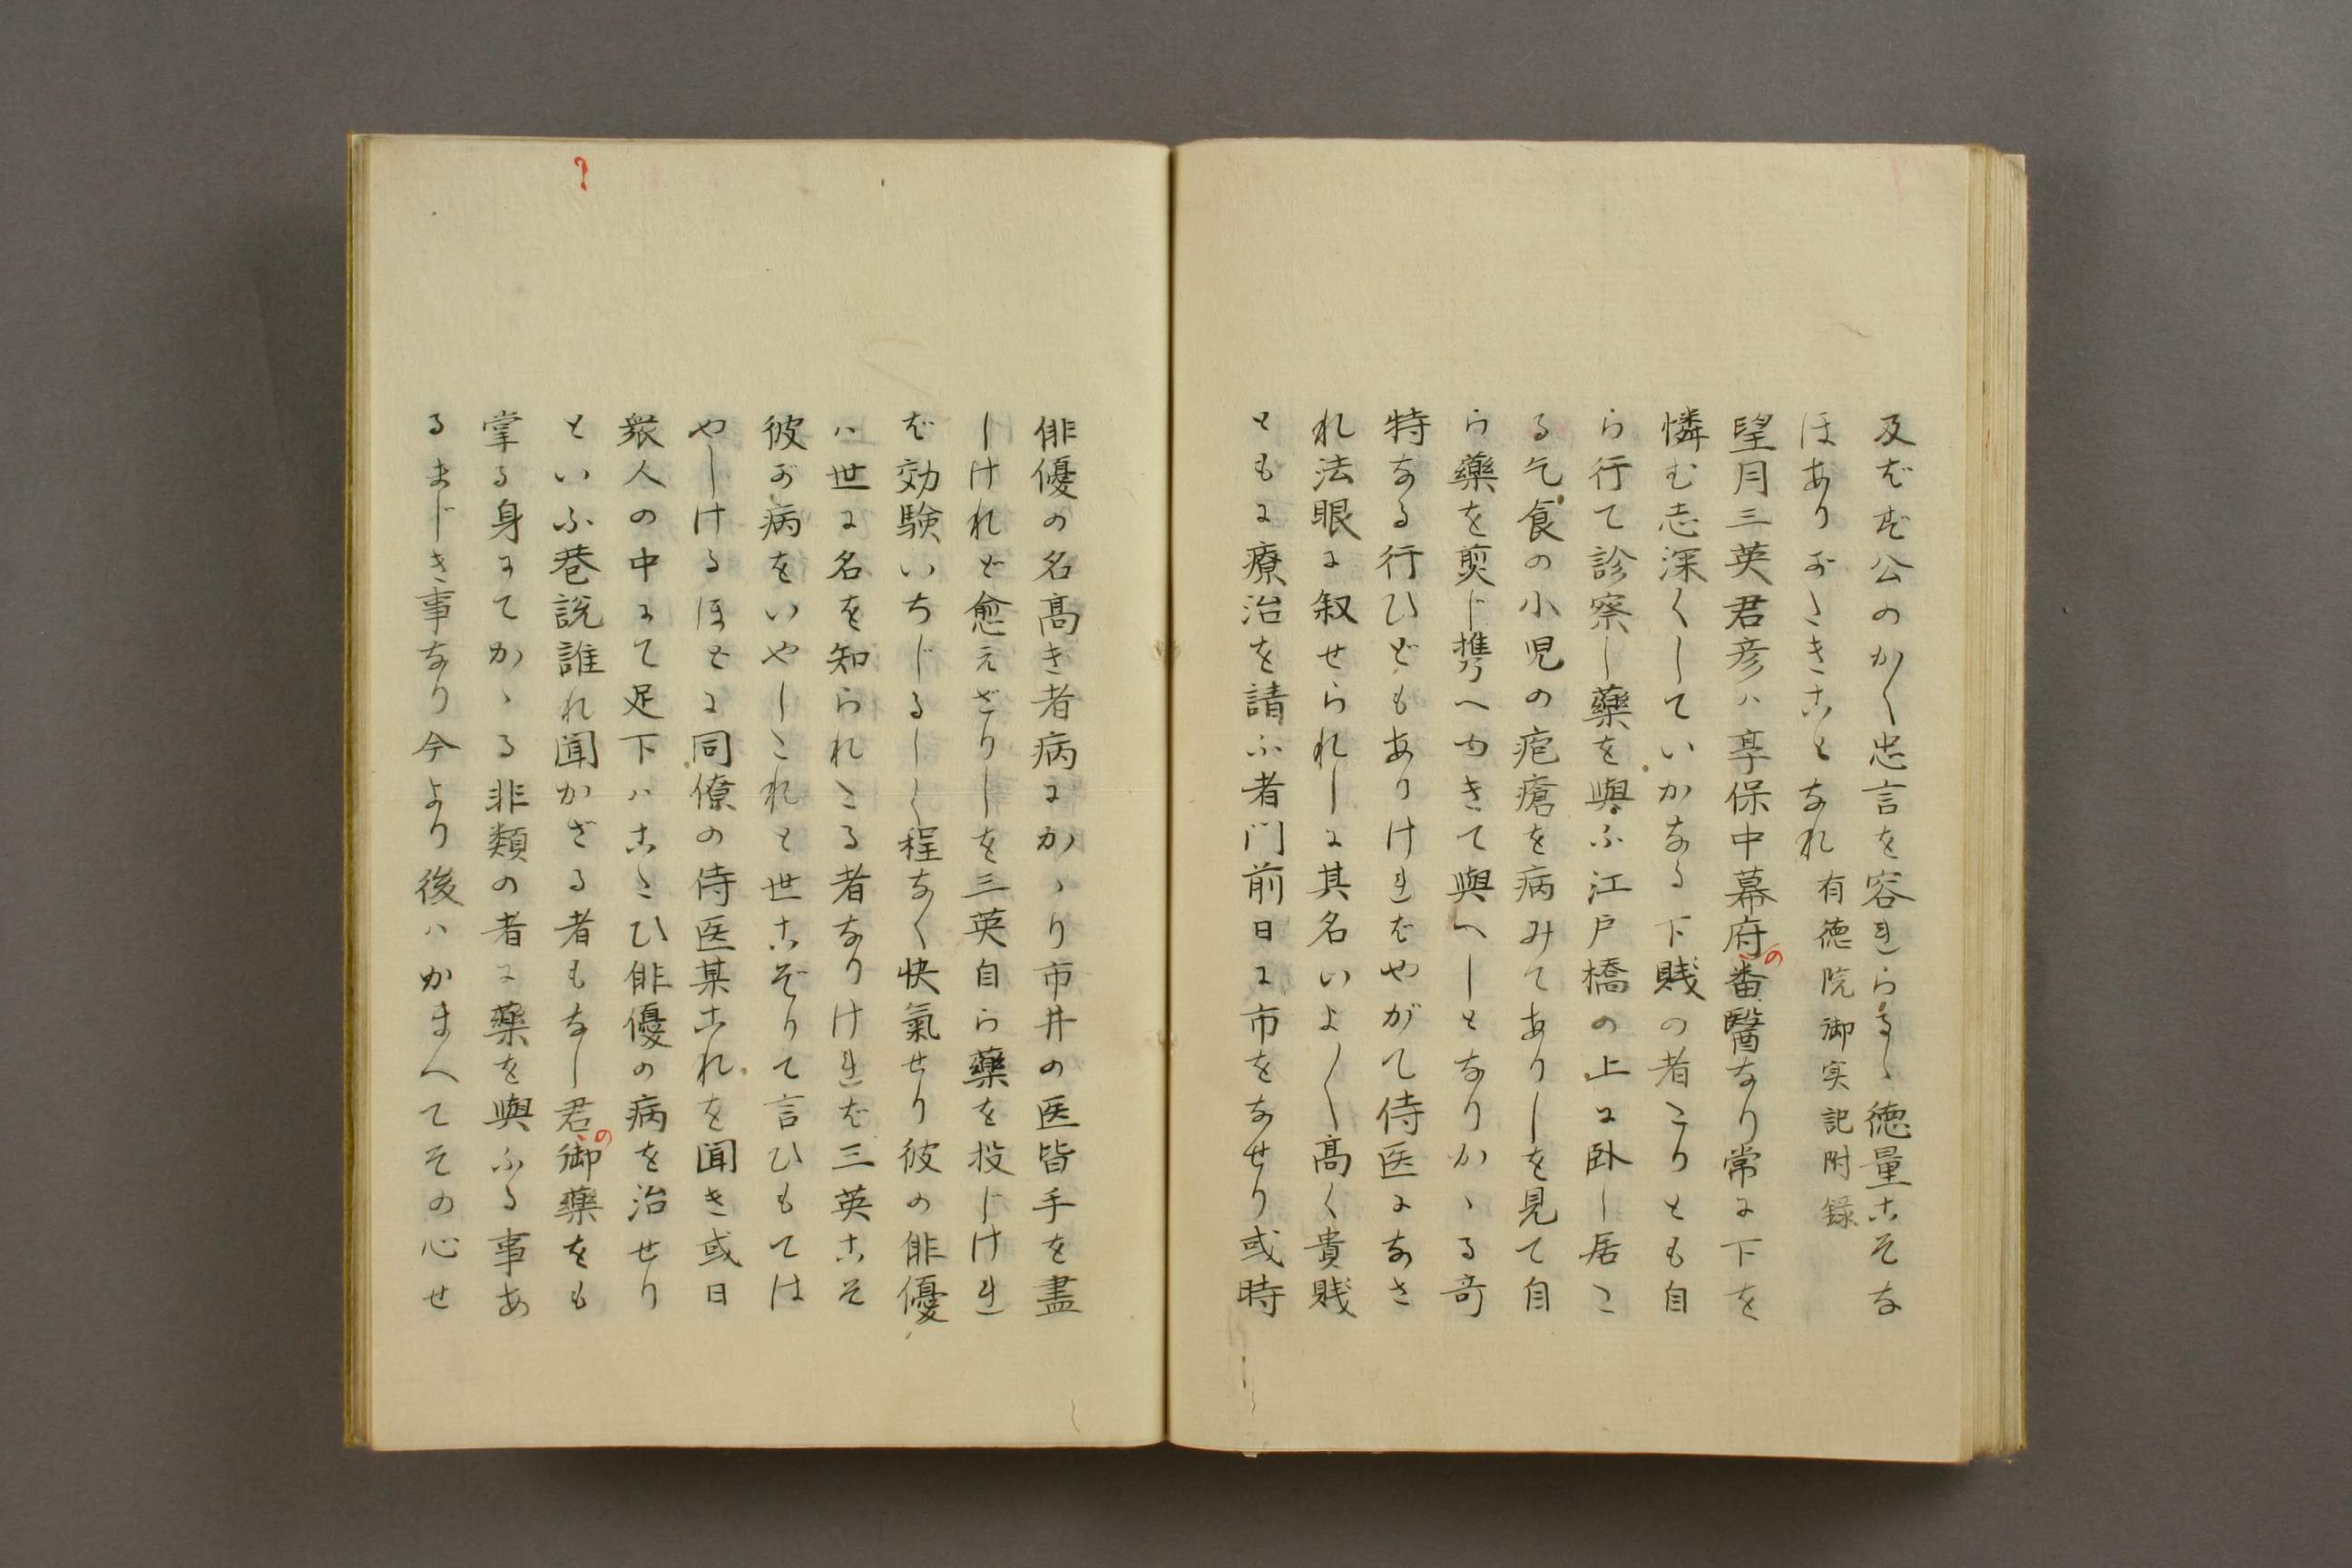 及ばず公のかく忠言を容れらるゝ徳量こそな
ほありがたきことなれ 有徳院御実記附録
望月三英君彦ハ享保中幕府の番醫なり常に下を
憐む志深くしていかなる下賤の者たりとも自
ら行て診察し藥を與ふ江戸橋の上に卧し居た
る乞食の小児の疱瘡を病みてありしを見て自
ら藥を煎じ携へゆきて與へしとなりかゝる奇
特なる行ひどもありければやがて侍医になさ
れ法眼に叙せられしに其名いよ〱高く貴賤
ともに療治を請ふ者門前日に市をなせり或時
俳優の名髙き者病にかゝり市井の医皆手を盡
しけれど愈えざりしを三英自ら藥を投じけれ
ば効験いちじるしく程なく快氣せり彼の俳優
ハ世に名を知られたる者なりければ三英こそ
彼が病をいやしたれと世こぞりて言ひもては
やしけるほどに同僚の侍医某これを聞き或日
衆人の中にて足下ハこたび俳優の病を治せり
といふ巷説誰れ聞かざる者もなし君の御藥をも
掌る身にてかゝる非類の者に藥を與ふる事あ
るまじき事なり今より後ハかまへてその心せ